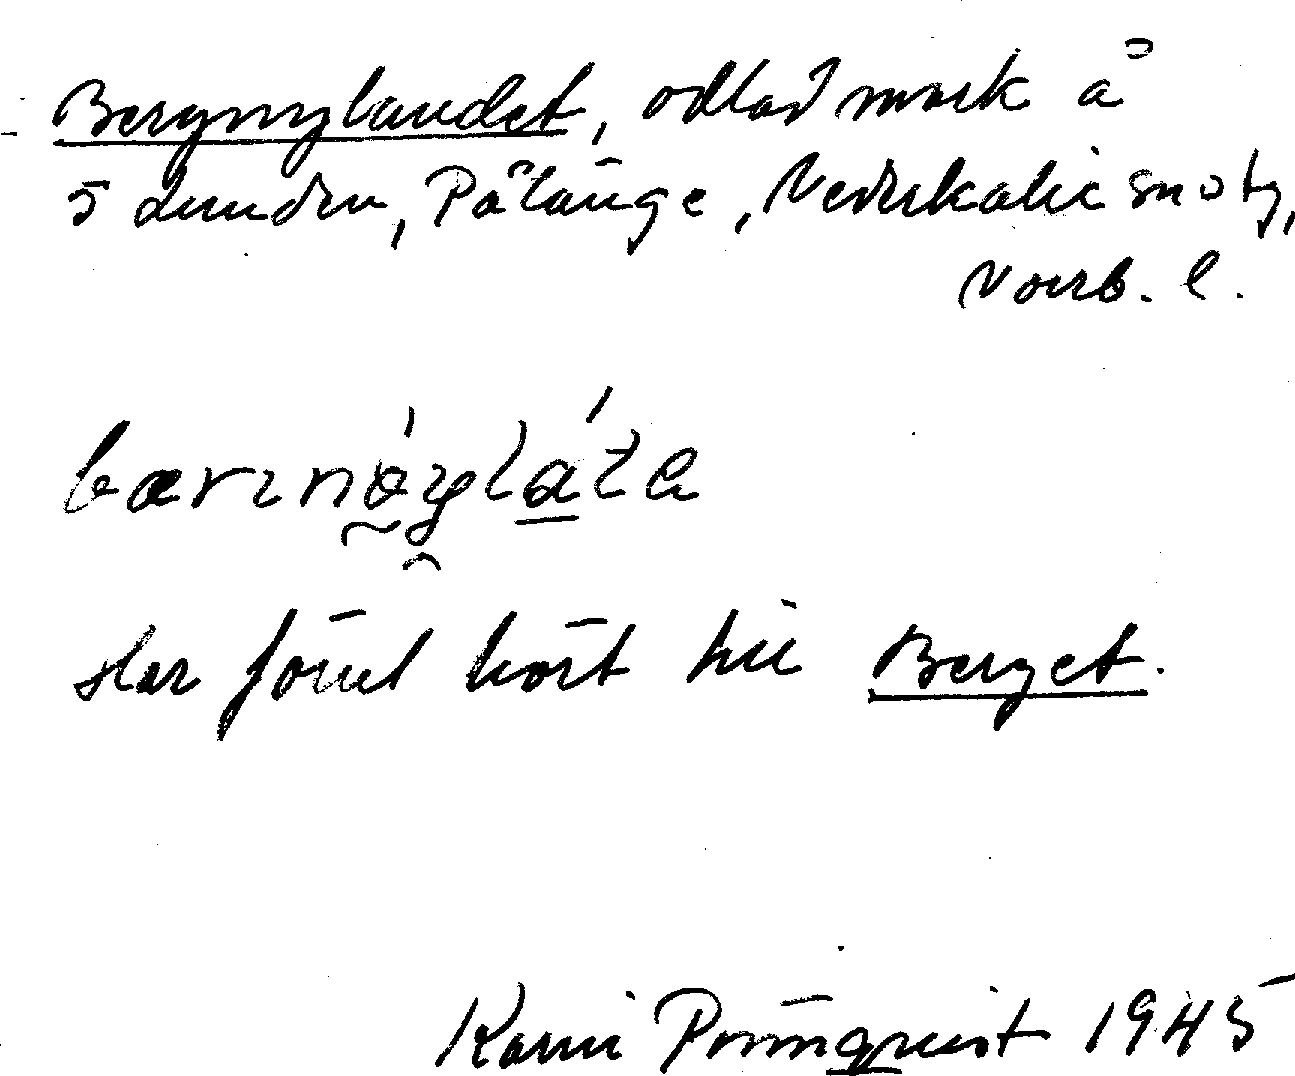 Bergnylandet, odlad mark å
5 Lunden, Pålänge, Nederkalix sn o tg,
Norrb. l.
bærɪnøylåta
Har förut hört till Berget.
Karin Pörnquist 1945